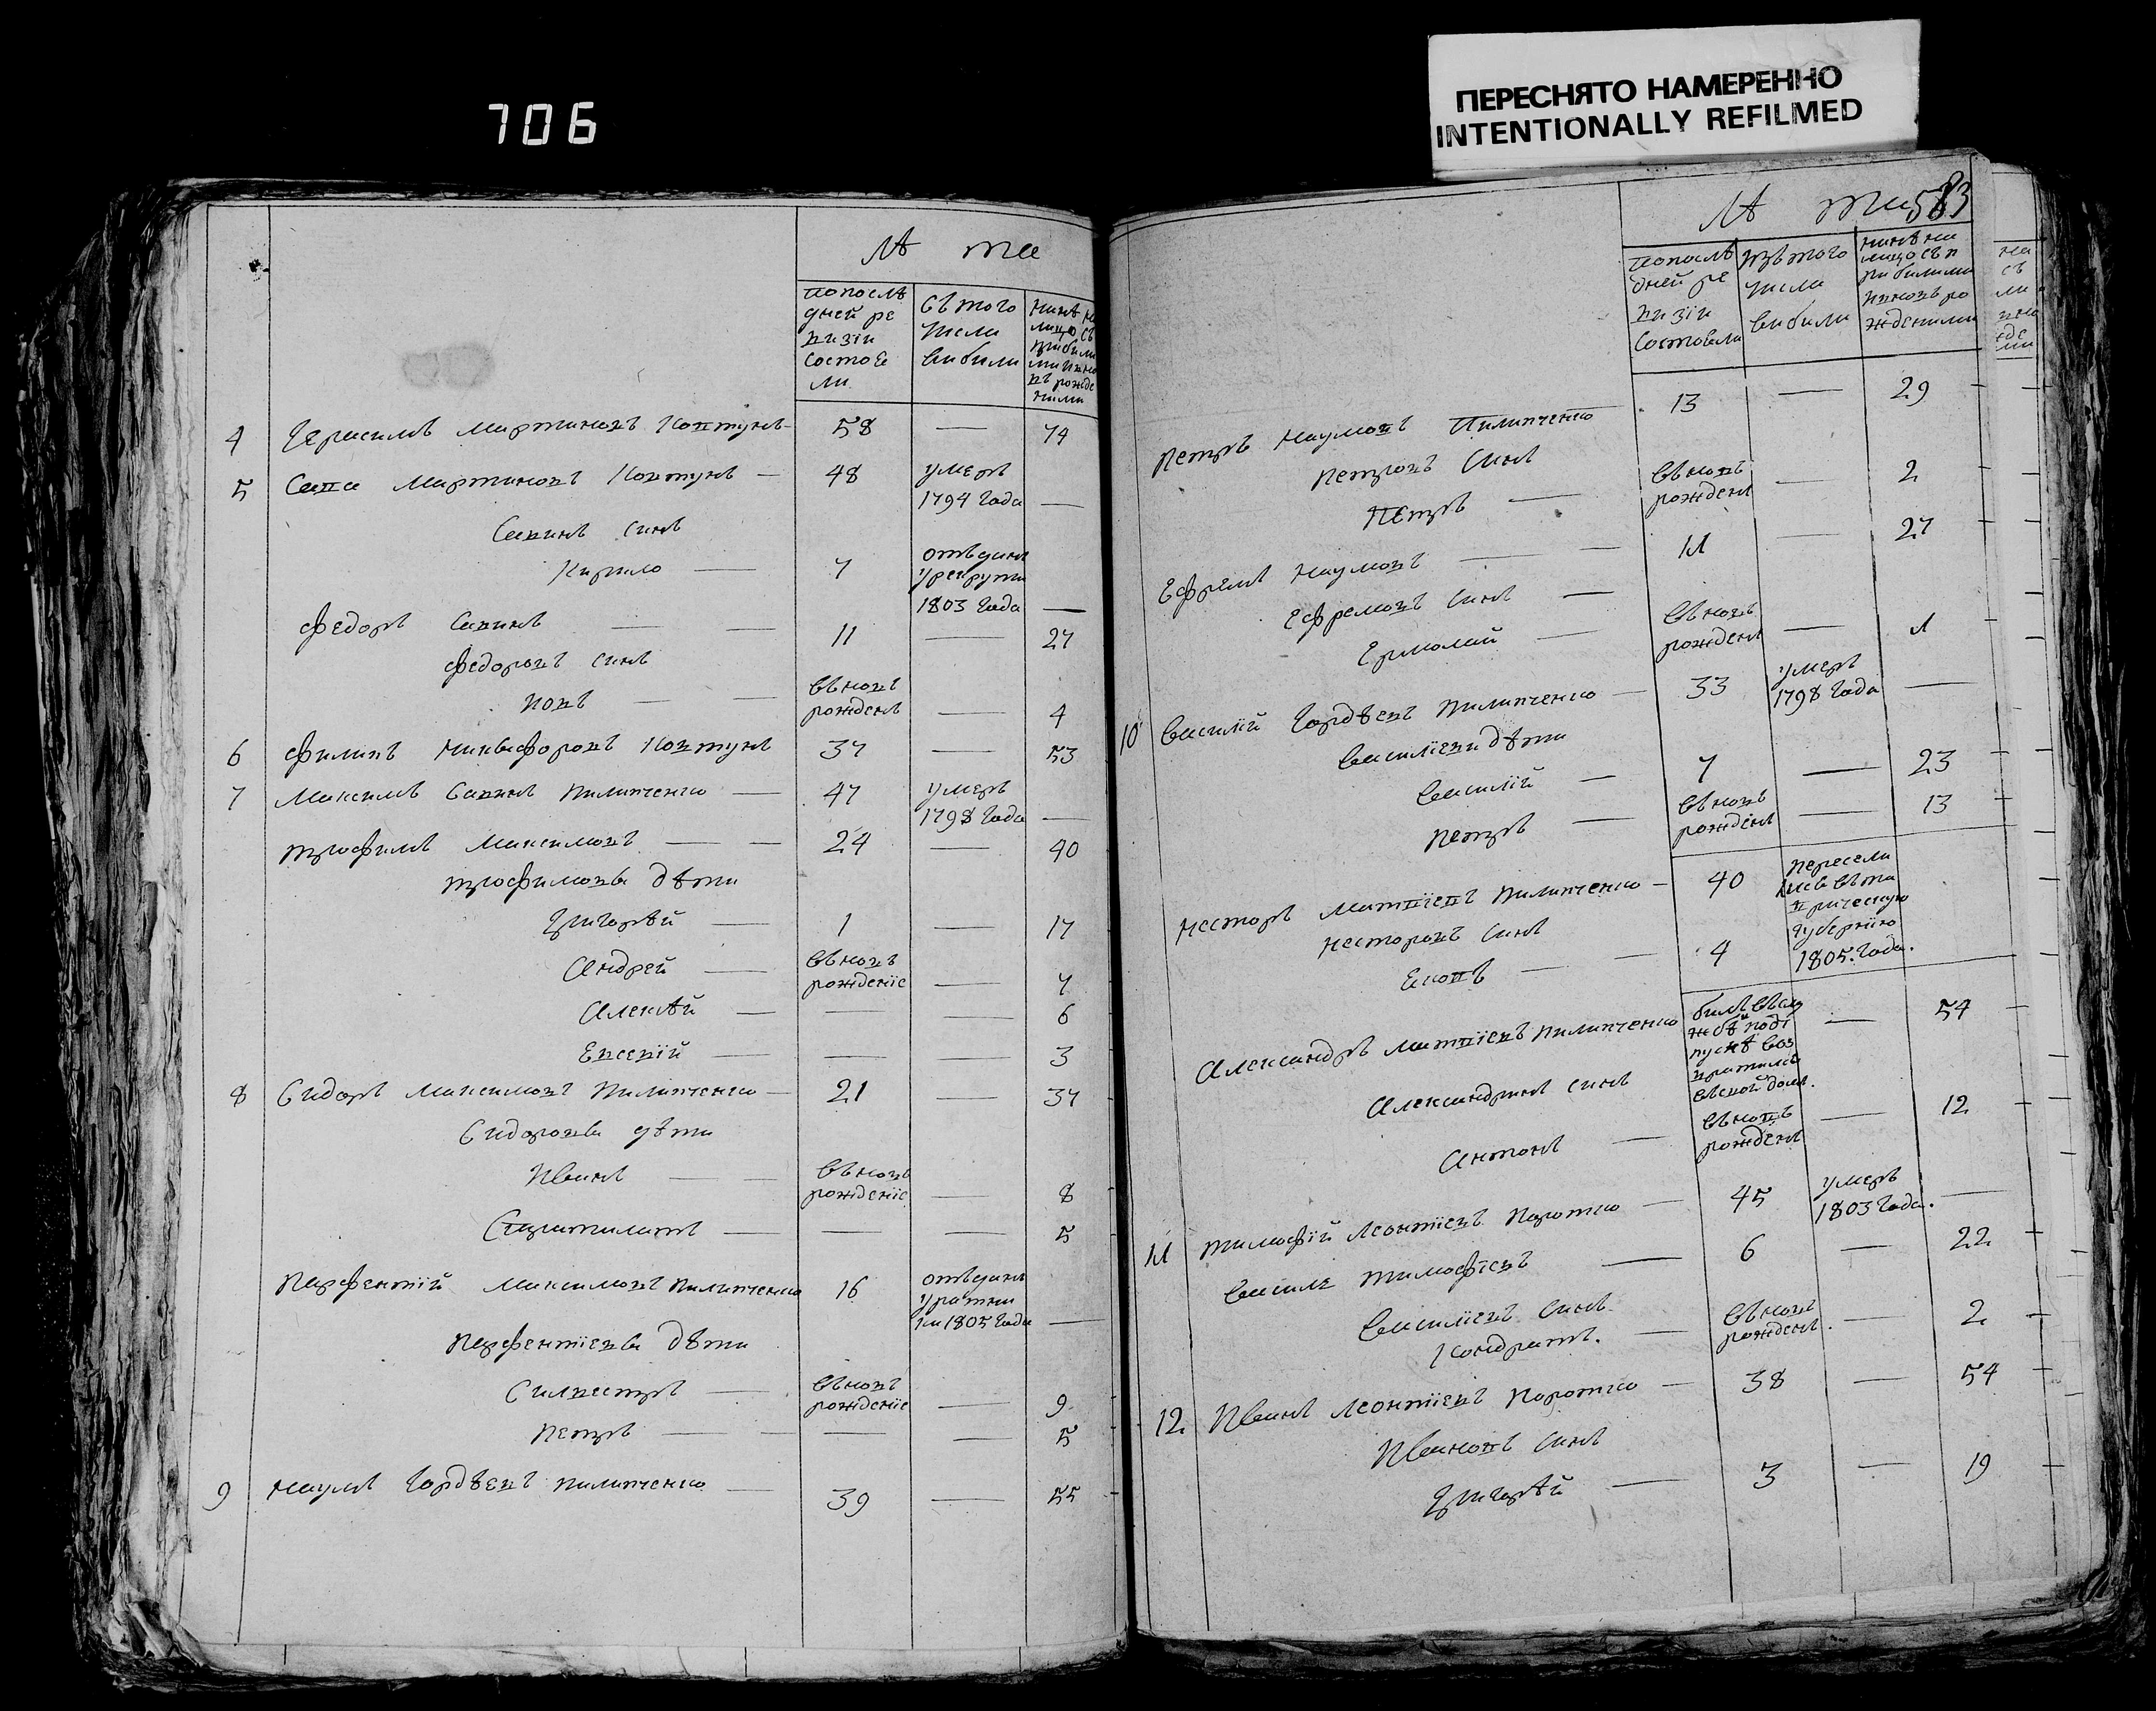 706
ПЕРЕСНЯТО НАМЕРЕННО
INTENTIONALLY REFILMED
Лѣта
попослѣ
дней ре
визіи
состоя
ли
съ того
числа
выбыли
4 Герасимъ Мартиновъ Ковтунъ — 58 — 74
5 Сава Мартиновъ Ковтунъ — 48 умеръ
1794 года —
Савинъ синъ
Кирило — 7 отъданъ
у рекруты
1803 года —
Федоръ Савинъ — — 11 — 27
Федоровъ синъ
Иовъ — — въновъ
рожденъ — 4
6 Филипъ Никифоровъ Ковтунъ 37 — 53
7 Максимъ Савинъ Пилипченко — 47 умеръ
1798 года —
Трофимъ Максимовъ — — 24 — 40
Трофимовы дѣти
Григорѣй — 1 — 17
Андрей — въновъ
рожденіе — 7
Алексѣй — — — 6
Евсевій — — — 3
8 Сидоръ Максимовъ Пилипченко — 21 — 37
Сидоровы дѣти
Иванъ — — въновъ
рожденіе — 8
— — — 5
Парфентій Максимовъ Пилипченко 16 отъданъ
у ратни
ки 1805 года —
Парфентіевы дѣти
Силвестръ — въновъ
рожденіе — 9
Петръ — — — — 5
9 Наумъ Гордѣевъ Пилипченко — 39 — 55
583
Лѣта
попослѣ
дней ре
визіи
состояли
изъ того
числа
выбыли
нинѣ на
лицо съ п
рибилими
и вновь ро
жденими
Петръ Наумовъ Пилипченко 13 — 29
Петровъ синъ
Петръ — въновъ
рожденъ — 2
Ефремъ Наумовъ — — 11 — 27
Ефремовъ синъ —
Ермолай — въновъ
рожденъ — 1
10 Василій Гордѣевъ Пилипченко — 33 умеръ
1798 года —
Василіеви дѣти
Василій — 7 — 23
Петръ — въновъ
рожденъ — 13
Несторъ Матвіевъ Пилипченко — 40 пересели
лисъ въ та
врическую
губернію
1805. года.
Несторовъ синъ
Яковъ — — 4
Александръ Матвіевъ Пилипченко билъ въслу
жбѣ и по от
пускѣ воз
вратилсь
въ свой домъ.
— 54
Александринъ синъ
Антонъ — въновъ
рожденъ — 12
11 Тимофій Леонтіевъ Коротко — 45 умеръ
1803 года. —
Василь Тимофіевъ — 6 — 22
Василіевъ синъ
Кондратъ. — въновъ
рожденъ. — 2
12. Иванъ Леонтіевъ Коротко — 38 — 54
Ивановъ синъ
Григорѣй — 3 — 19